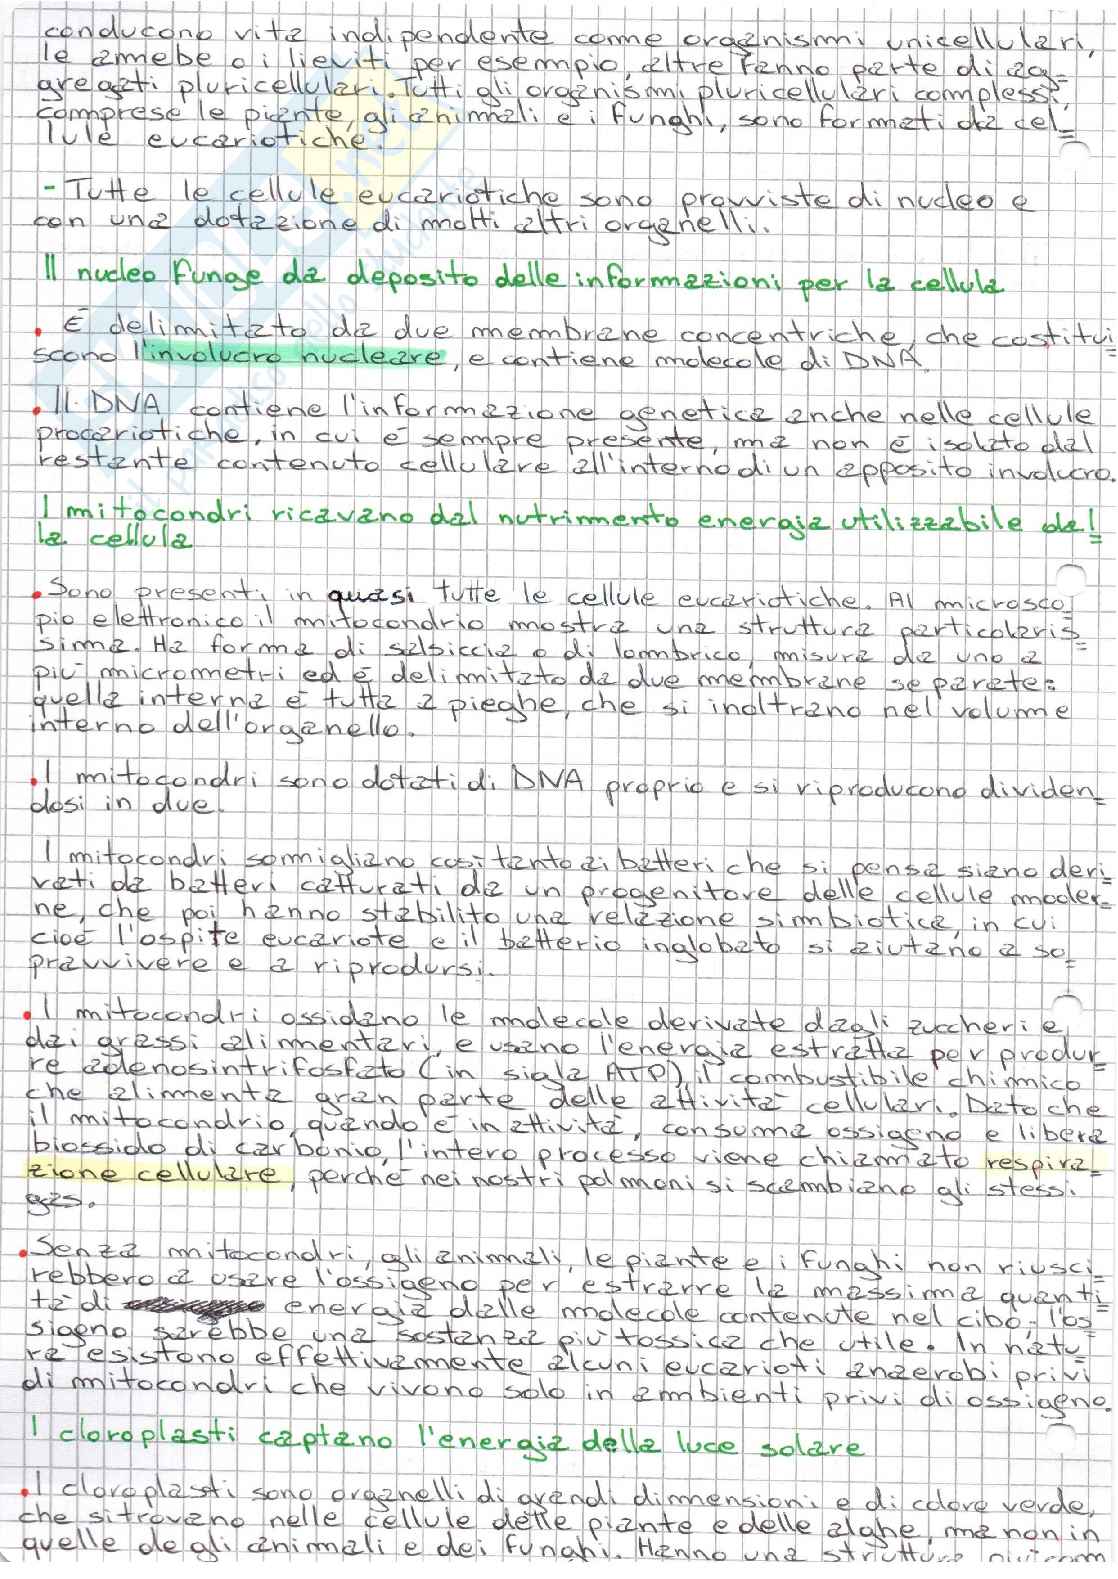 conducono vita indipendente come organismi unicellulari,
le amebe o i lieviti per esempio, altre fanno parte di ag=
gregati pluricellulari. Tutti gli organismi pluricellulari complessi,
comprese le piante, gli animali e i funghi, sono formati da cel=
lule eucariotiche.
- Tutte le cellule eucariotiche sono provviste di nucleo e
con una dotazione di molti altri organelli.
Il nucleo funge da deposito delle informazioni per la cellula
. È delimitato da due membrane concentriche, che costitui=
scono l'involucro nucleare, e contiene molecole di DNA.
. Il DNA contiene l'informazione genetica anche nelle cellule
procariotiche, in cui è sempre presente, ma non è isolato dal
restante contenuto cellulare all'interno di un apposito involucro.
I mitocondri ricavano dal nutrimento energia utilizzabile dal=
la cellula
. Sono presenti in quasi tutte le cellule eucariotiche. Al microsco=
pio elettronico il mitocondrio mostra una struttura particolaris=
sima. Ha forma di salsiccia o di lombrico, misura da uno a
più micrometri ed è delimitato da due membrane separate:
quella interna è tutta a pieghe, che si inoltrano nel volume
interno dell'organello.
. I mitocondri sono dotati di DNA proprio e si riproducono dividen=
dosi in due.
I mitocondri somigliano così tanto ai batteri che si pensa siano deri=
vati da batteri catturati da un progenitore delle cellule moder=
ne, che poi hanno stabilito una relazione simbiotica, in cui
cioè l'ospite eucariote e il batterio inglobato si aiutano a so=
pravvivere e a riprodursi.
. I mitocondri ossidano le molecole derivate dagli zuccheri e
dai grassi alimentari, e usano l'energia estratta per produr=
re adenosintrifosfato (in sigla ATP), il combustibile chimico
che alimenta gran parte delle attività cellulari. Dato che
il mitocondrio, quando è in attività, consuma ossigeno e libera
biossido di carbonio, l'intero processo viene chiamato respira=
zione cellulare, perché nei nostri polmoni si scambiano gli stessi
gas.
. Senza mitocondri, gli animali, le piante e i funghi non riusci=
rebbero a usare l'ossigeno per estrarre la massima quanti=
tà di energia dalle molecole contenute nel cibo; l'os=
sigeno sarebbe una sostanza più tossica che utile. In natu=
ra esistono effettivamente alcuni eucarioti anaerobi privi
di mitocondri che vivono solo in ambienti privi di ossigeno.
I cloroplasti captano l'energia della luce solare
. I cloroplasti sono organelli di grandi dimensioni e di colore verde,
che si trovano nelle cellule delle piante e delle alghe, ma non in
quelle degli animali e dei funghi. Hanno una struttura